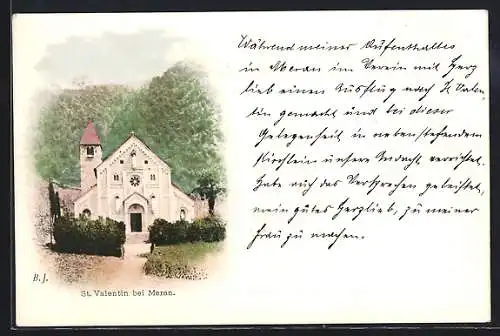 Während meiner Aufenthaltes
in Meran im Verein mit Herz
lieb einen Ausflug nach St. Valen
tin gemacht und bei dieser
Gelegenheit in nebenstehendem
Kirchlein unsere Andacht verrichtet.
Habe auch das Versprechen geleistet,
mein gutes Herzlieb, zu meiner
Frau zu machen.
B. J.
St. Valentin bei Meran.